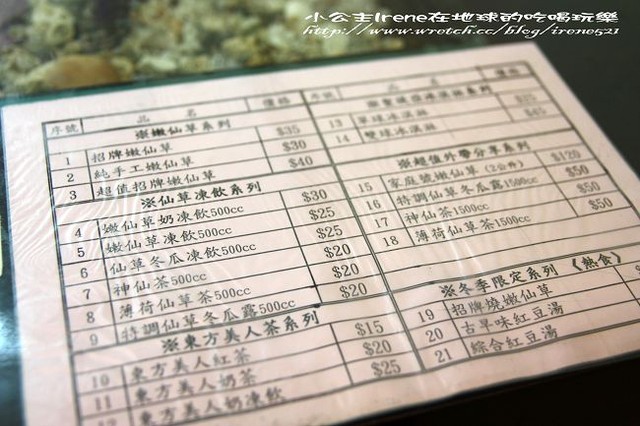 小公主Irene在地球的吃喝玩樂
http://www.wretch.cc/blog/irene521
序號 品名 價格
※嫩仙草系列
1 招牌嫩仙草 $35
2 純手工嫩仙草 $30
3 超值招牌嫩仙草 $40
※仙草凍飲系列
4 嫩仙草奶凍飲500cc $30
5 嫩仙草凍飲500cc $25
6 仙草冬瓜凍飲500cc $25
7 神仙茶500cc $20
8 薄荷仙草茶500cc $20
9 特調仙草冬瓜露500cc $20
※東方美人茶系列
10 東方美人紅茶 $15
11 東方美人奶茶 $20
12 東方美人奶凍飲 $25
序號 品名 價格
13 單球冰淇淋 $25
14 雙球冰淇淋 $45
※超值外帶分享系列
15 家庭號嫩仙草(2公斤) $120
16 特調仙草冬瓜露1500cc $50
17 神仙茶1500cc $50
18 薄荷仙草茶1500cc $50
※冬季限定系列《熱食》
19 招牌燒嫩仙草
20 古早味紅豆湯
21 綜合紅豆湯